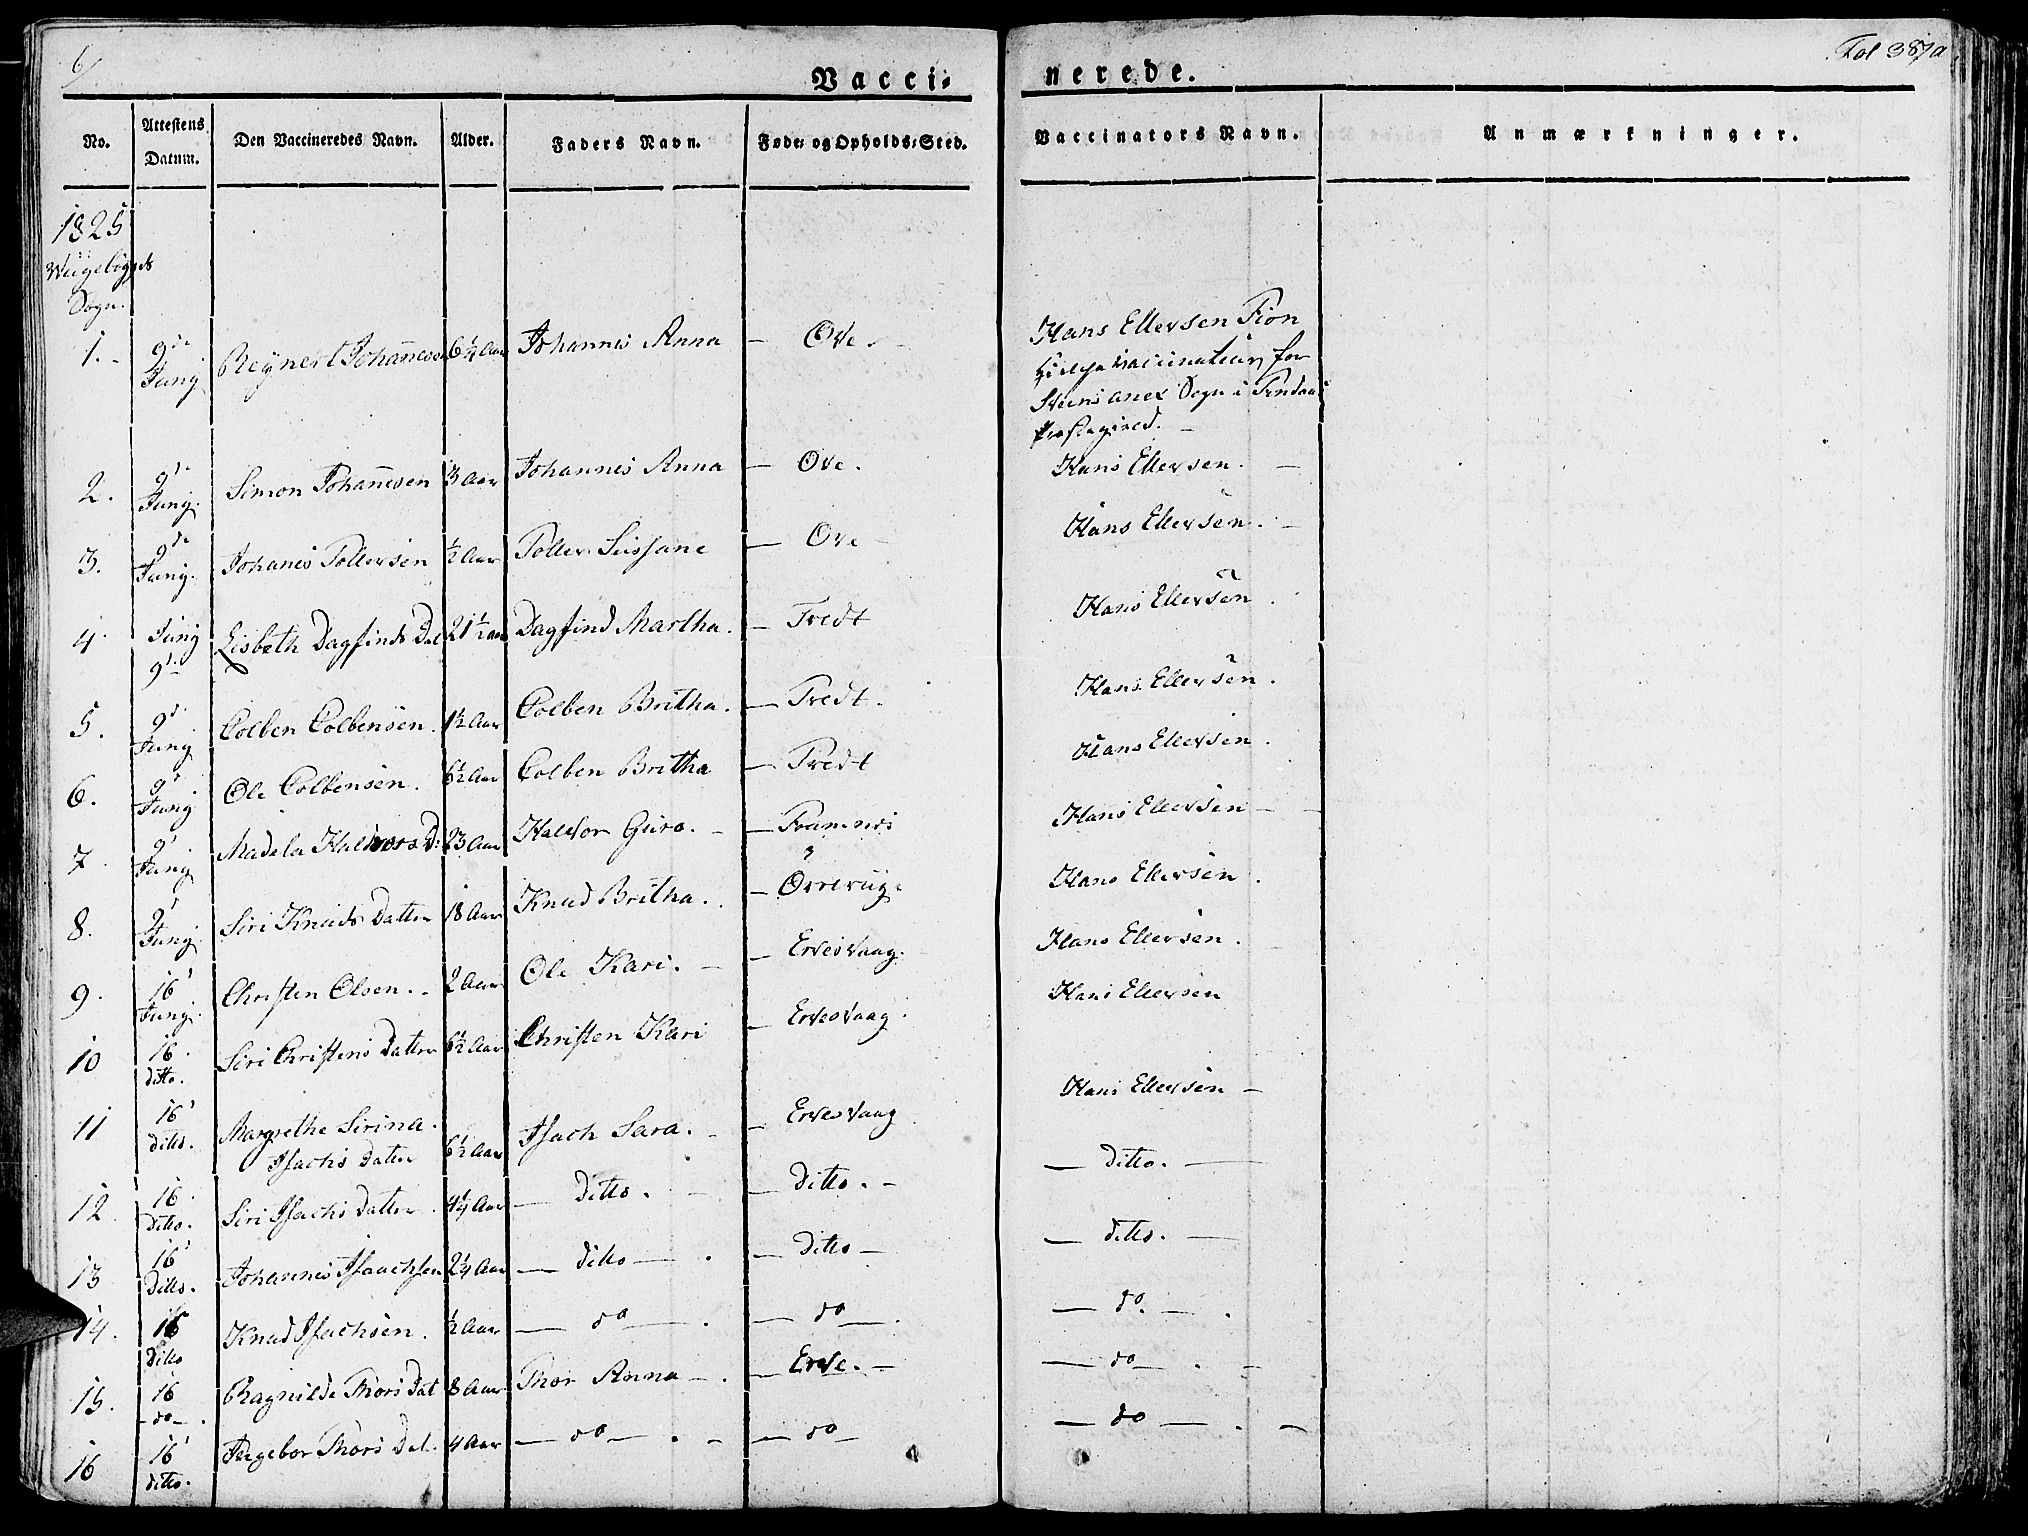 6/
Fol 387a
Vacci- nerede.
No. Attestens Datum. Den Vaccineredes Navn. Alder. Faders Navn. Føde- og Opholds-Sted. Vaccinators Navn. Anmærkninger.
1825
Sogn.
1. 9de Junÿ Reÿnert Johannesen 6 1/4 Aar Johannis Anna — Ove. Hans Ellersen Fion
Hielpe Vaccinateur for
Steens anex Sogn i
Præstegield.
2. 9de Junÿ. Simon Johannesen 3 Aar Johannis Anna — Ove. Hans Ellersen. —
3. 9de Junÿ. Johanes Tollersen 1/2 Aar Toller Sussane — Ove Hans Ellersen. —
4. Junÿ 9de Lisbeth Dagfinds Dat 21 1/2 aar Dagfind Martha. — Tredt Hans Ellersen.
5. 9de Junÿ Colben Colbensen. 1 1/2 Aar Colben Britha. — Tredt. Hans Ellersen.
6. 9de Junÿ Ole Colbensen. 6 1/2 Aar Colben Britha — Tredt Hans Ellersen.
7. 9de Junÿ Madela Haldvors D: 23 Aar Haldvor Guro. — — Framnes Hans Ellersen —
8. 9de Junÿ. Siri Knuds Datter 18 Aar Knud Britha. — Hans Ellersen.
9. 16 Junÿ. Christen Olsen. - 2 Aar Ole Kari. — — Ervesvaag. Hans Ellersen.
10 16. ditto. Siri Christens Datter 6 1/2 Aar Christen Kari — Ervesvaag. Hans Ellersen
11 16 ditto. Margrethe Sirina.
Isachs Datter 6 1/2 Aar Isach Sara. — — Ervesvaag Hans Ellersen —
12. 16 Ditto. Siri Isachs Datter. 4 1/4 Aar — Ditto. — — Ditto. — — Ditto. —
13 16 Ditto. Johannis Isaachsen 2 1/4 Aar — Ditto — . — Ditto — — ditto. —
14. 16 Ditto Knud Isachsen. 1/2 Aar — do — . — do — . — do. — .
15. 16 - do - . Ragnilde Thors Dat 8 Aar Thor Anna — . — Erve. — — do — . —
16 16 ditto. Ingebor Thors Dat. 4 Aar — do — . — — do — — do — . —